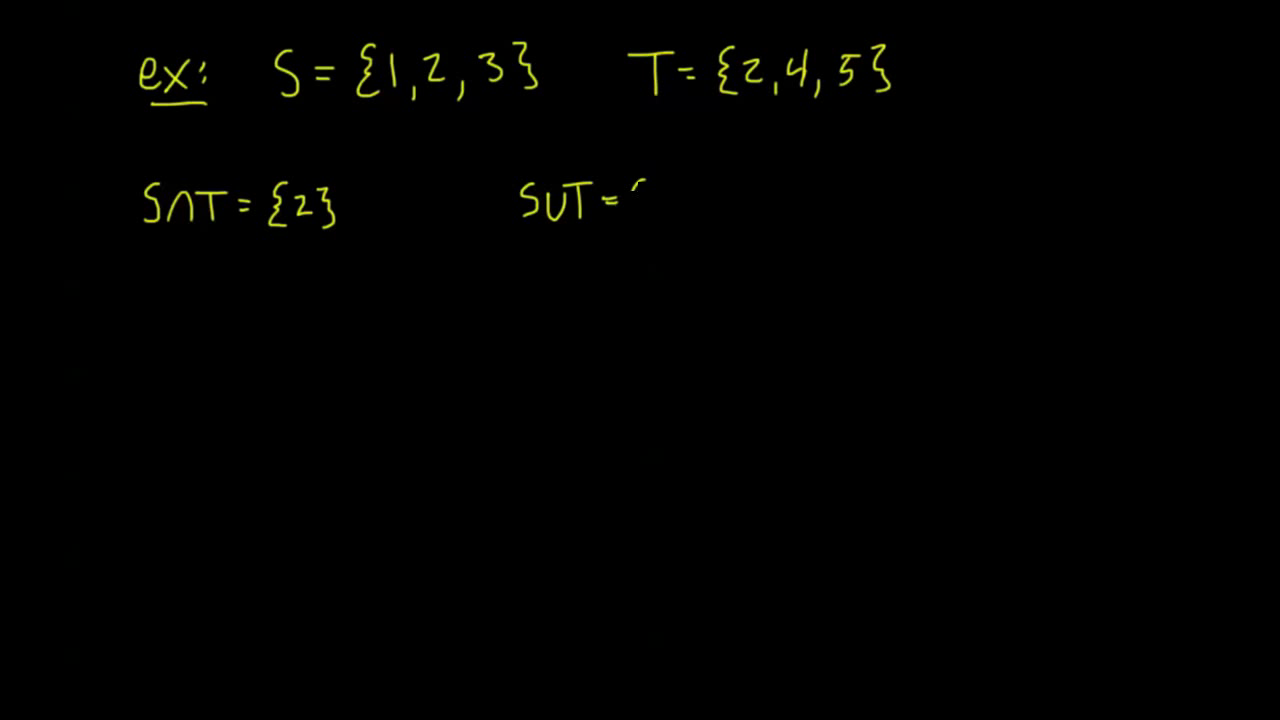 ex: S = {1, 2, 3} T = {2, 4, 5}
S∩T = {2} S∪T =